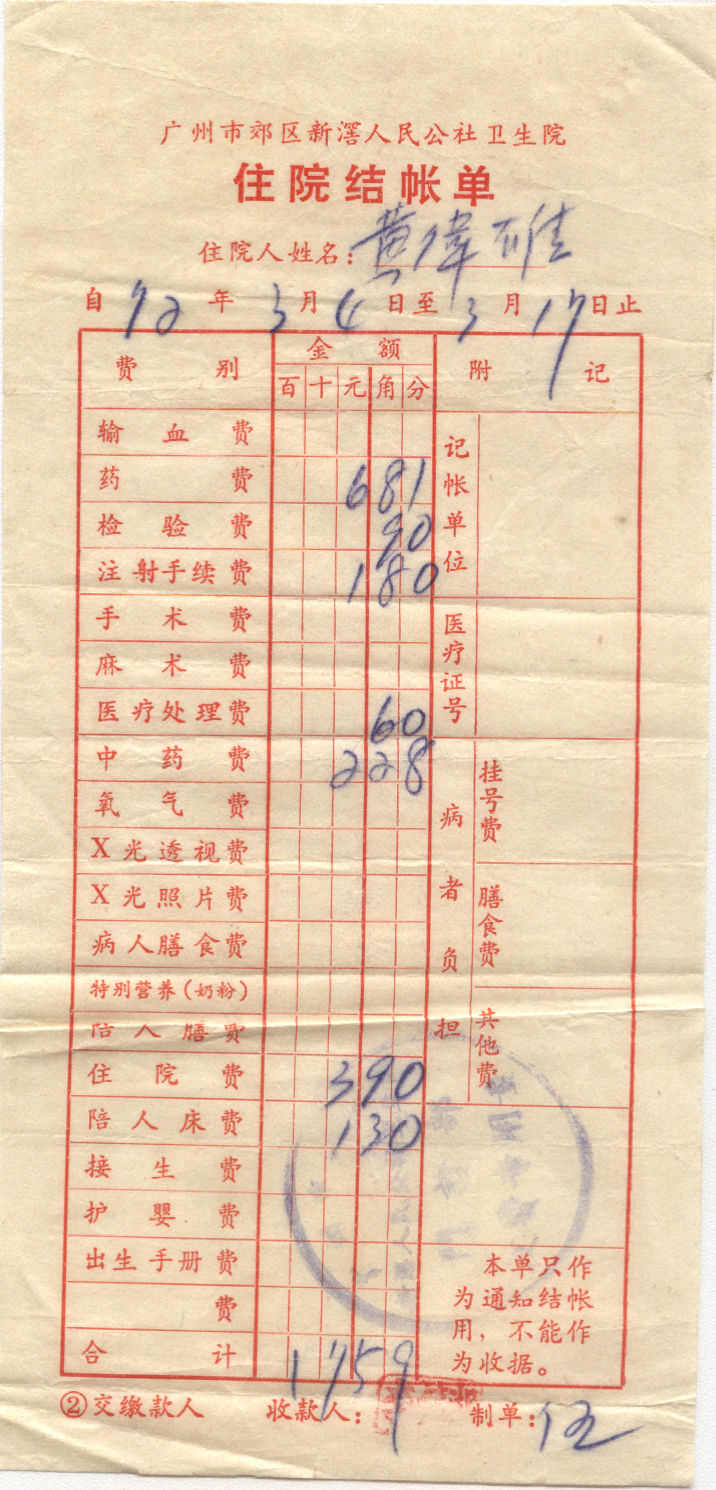 广州市郊区新滘人民公社卫生院
住院结帐单
住院人姓名：黄偉雄
自 72 年 3 月 4 日至 3 月 17 日止
费别 金额 附记
百 十 元 角 分
输血费
药费 681
检验费 90
注射手续费 180
手术费
麻术费
医疗处理费 60
中药费 228
氧气费
X光透视费
X光照片费
病人膳食费
特别营养(奶粉)
陪人膳费
住院费 390
陪人床费 130
接生费
护婴费
出生手册费
费
合计 1759
记帐单位
医疗证号
病者负担
挂号费
膳食费
其他费
本单只作
为通知结帐
用，不能作
为收据。
②交缴款人 收款人： 制单：伍